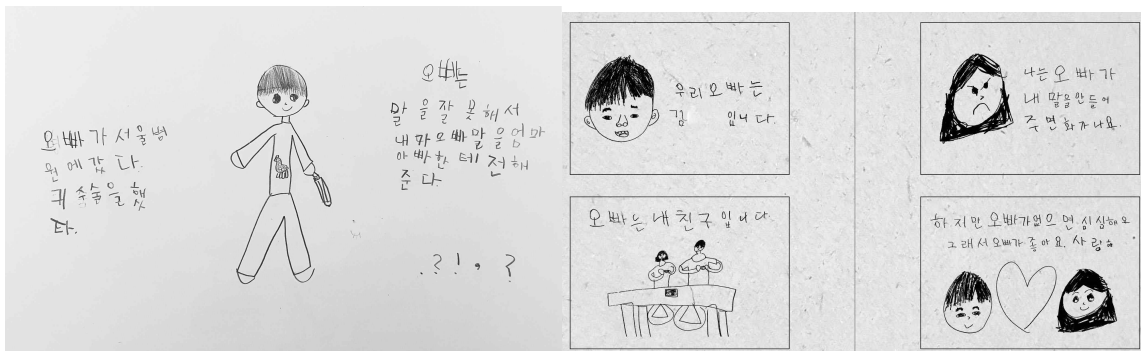 오빠가 서울병
원에 갔다.
귀 수술을 했
다.
오빠는
말을 잘 못해서
내가 오빠말을 엄마
아빠한테 전해
준다.
.?!,?
우리 오빠는
김 입니다.
나는 오빠가
내 말을 안 들어
주면 화가 나요.
오빠는 내 친구입니다.
하지만 오빠가 없으면 심심해요
그래서 오빠가 좋아요. 사랑